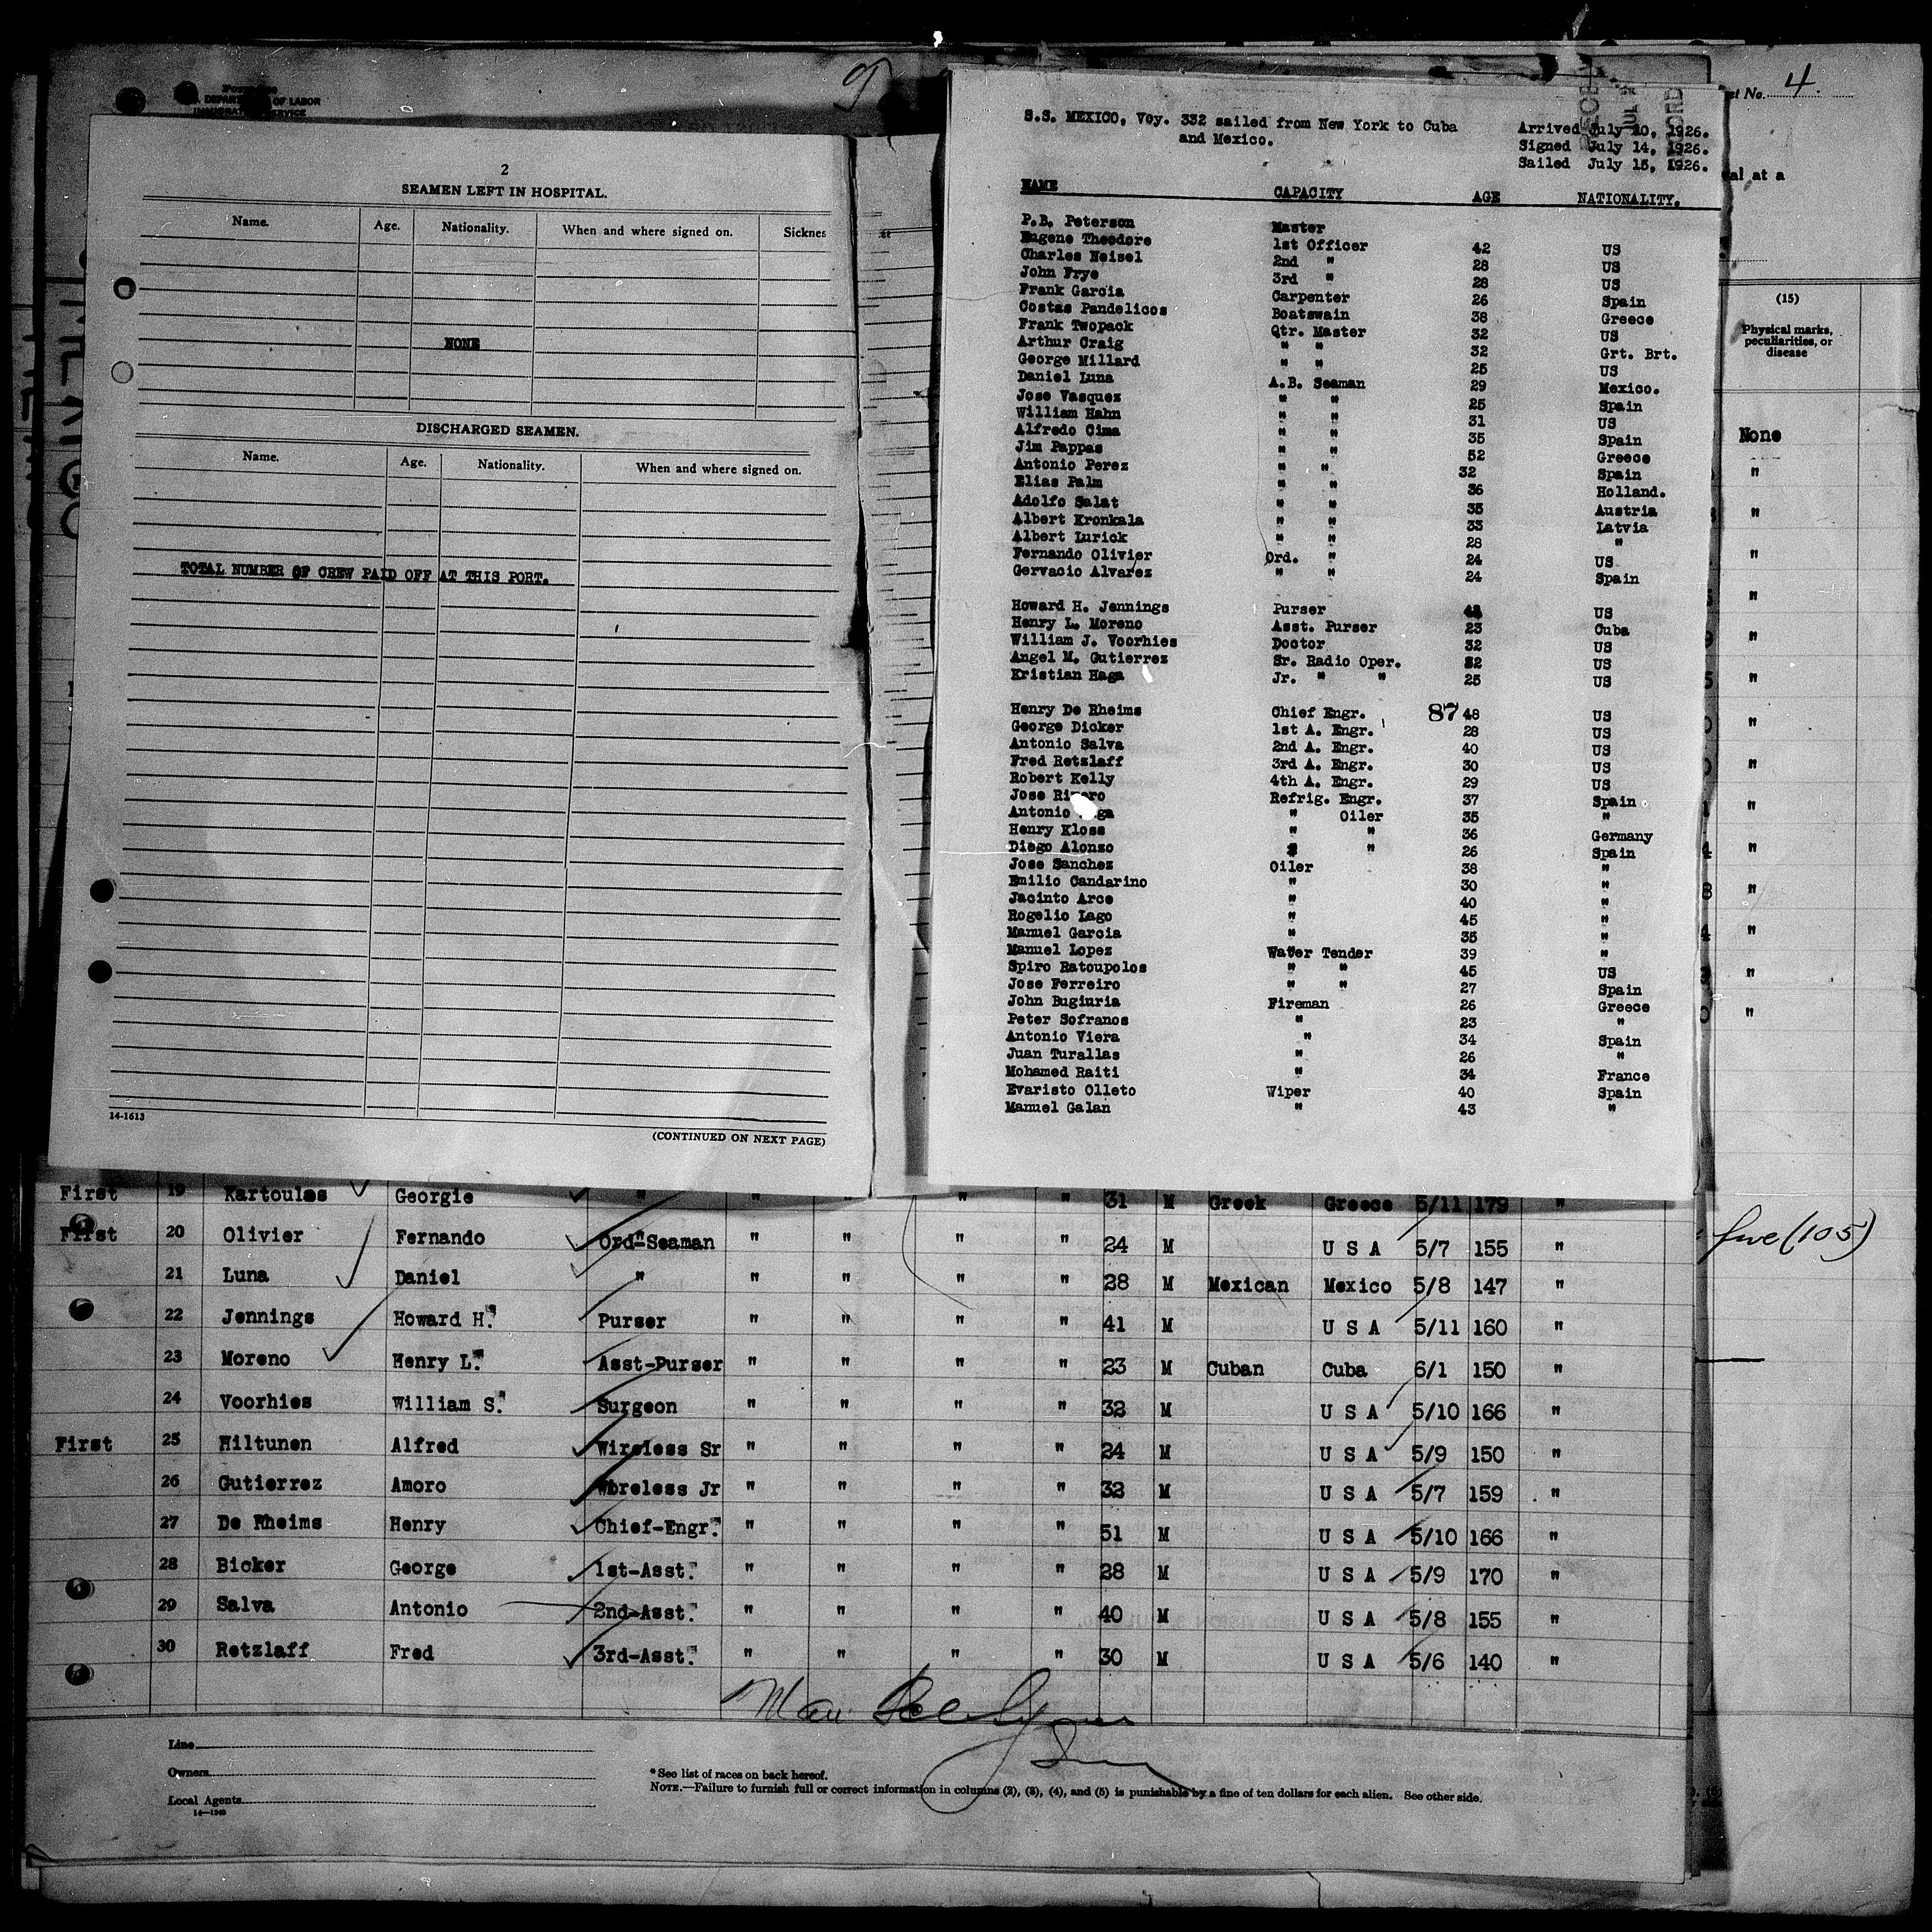 9
DEPARTMENT OF LABOR
2
SEAMEN LEFT IN HOSPITAL.
Name. Age. Nationality. When and where signed on. Sicknes
NONE
DISCHARGED SEAMEN.
Name. Age. Nationality. When and where signed on.
TOTAL NUMBER OF CREW PAID OFF AT THIS PORT.
14-1613
(CONTINUED ON NEXT PAGE)
S.S. MEXICO, Voy. 332 sailed from New York to Cuba
and Mexico.
Arrived July 10, 1926.
Signed July 14, 1926.
Sailed July 15, 1926.
NAME CAPACITY AGE NATIONALITY.
P.B. Peterson Master
Eugene Theodore 1st Officer 42 US
Charles Neisel 2nd " 28 US
John Frye 3rd " 28 US
Frank Garcia Carpenter 26 Spain
Costas Pandelicos Boatswain 38 Greece
Frank Twopack Qtr. Master 32 US
Arthur Craig " " 32 Grt. Brt.
George Millard " " 25 US
Daniel Luna A.B. Seaman 29 Mexico.
Jose Vasquez " " 25 Spain
William Hahn " " 31 US
Alfredo Cima " " 35 Spain
Jim Pappas " " 52 Greece
Antonio Perez " " 32 Spain
Elias Palm " " 36 Holland.
Adolfo Salat " " 35 Austria
Albert Kronkala " " 33 Latvia
Albert Lurick " " 28 "
Fernando Olivier Ord. " 24 US
Gervacio Alvarez " " 24 Spain
Howard H. Jennings Purser 42 US
Henry L. Moreno Asst. Purser 23 Cuba
William J. Voorhies Doctor 32 US
Angel M. Gutierrez Sr. Radio Oper. 32 US
Kristian Haga Jr. " " 25 US
Henry De Rheims Chief Engr. 87 48 US
George Dicker 1st A. Engr. 28 US
Antonio Salva 2nd A. Engr. 40 US
Fred Retzlaff 3rd A. Engr. 30 US
Robert Kelly 4th A. Engr. 29 US
Jose Rivero Refrig. Engr. 37 Spain
Antonio " Oiler 35 "
Henry Kloss " " 36 Germany
Diego Alonzo " " 26 Spain
Jose Sanchez Oiler 38 "
Emilio Candarino " 30 "
Jacinto Arce " 40 "
Rogelio Lago " 45 "
Manuel Garcia " 35 "
Manuel Lopez Water Tender 39 "
Spiro Ratoupolos " " 45 US
Jose Ferreiro " " 27 Spain
John Bugiuria Fireman 26 Greece
Peter Sofranos " 23 "
Antonio Viera " 34 Spain
Juan Turallas " 26 "
Mohamed Raiti " 34 France
Evaristo Olleto Wiper 40 Spain
Manuel Galan " 43 "
et No. 4.
al at a
(15)
Physical marks,
peculiarities, or
disease
None
"
"
"
"
"
"
"
"
"
"
"
"
"
"
five (105)
First 19 Kartoulas Georgie " " " " " 31 M Greek Greece 5/11 179 "
First 20 Olivier Fernando Ord"Seaman " " " " 24 M U S A 5/7 155 "
21 Luna Daniel " " " " " 28 M Mexican Mexico 5/8 147 "
22 Jennings Howard H. Purser " " " " 41 M U S A 5/11 160 "
23 Moreno Henry L. Asst-Purser " " " " 23 M Cuban Cuba 6/1 150 "
24 Voorhies William S. Surgeon " " " " 32 M U S A 5/10 166 "
First 25 Hiltunen Alfred Wireless Sr " " " " 24 M U S A 5/9 150 "
26 Gutierrez Amoro Wbreless Jr " " " " 32 M U S A 5/7 159 "
27 De Rheims Henry Chief-Engr. " " " " 51 M U S A 5/10 166 "
28 Bicker George 1st-Asst. " " " " 28 M U S A 5/9 170 "
29 Salva Antonio 2nd-Asst. " " " " 40 M U S A 5/8 155 "
30 Retzlaff Fred 3rd-Asst. " " " " 30 M U S A 5/6 140 "
Line
Owners
Local Agents
14-1240
* See list of races on back hereof.
NOTE.—Failure to furnish full or correct information in columns (2), (3), (4), and (5) is punishable by a fine of ten dollars for each alien. See other side.